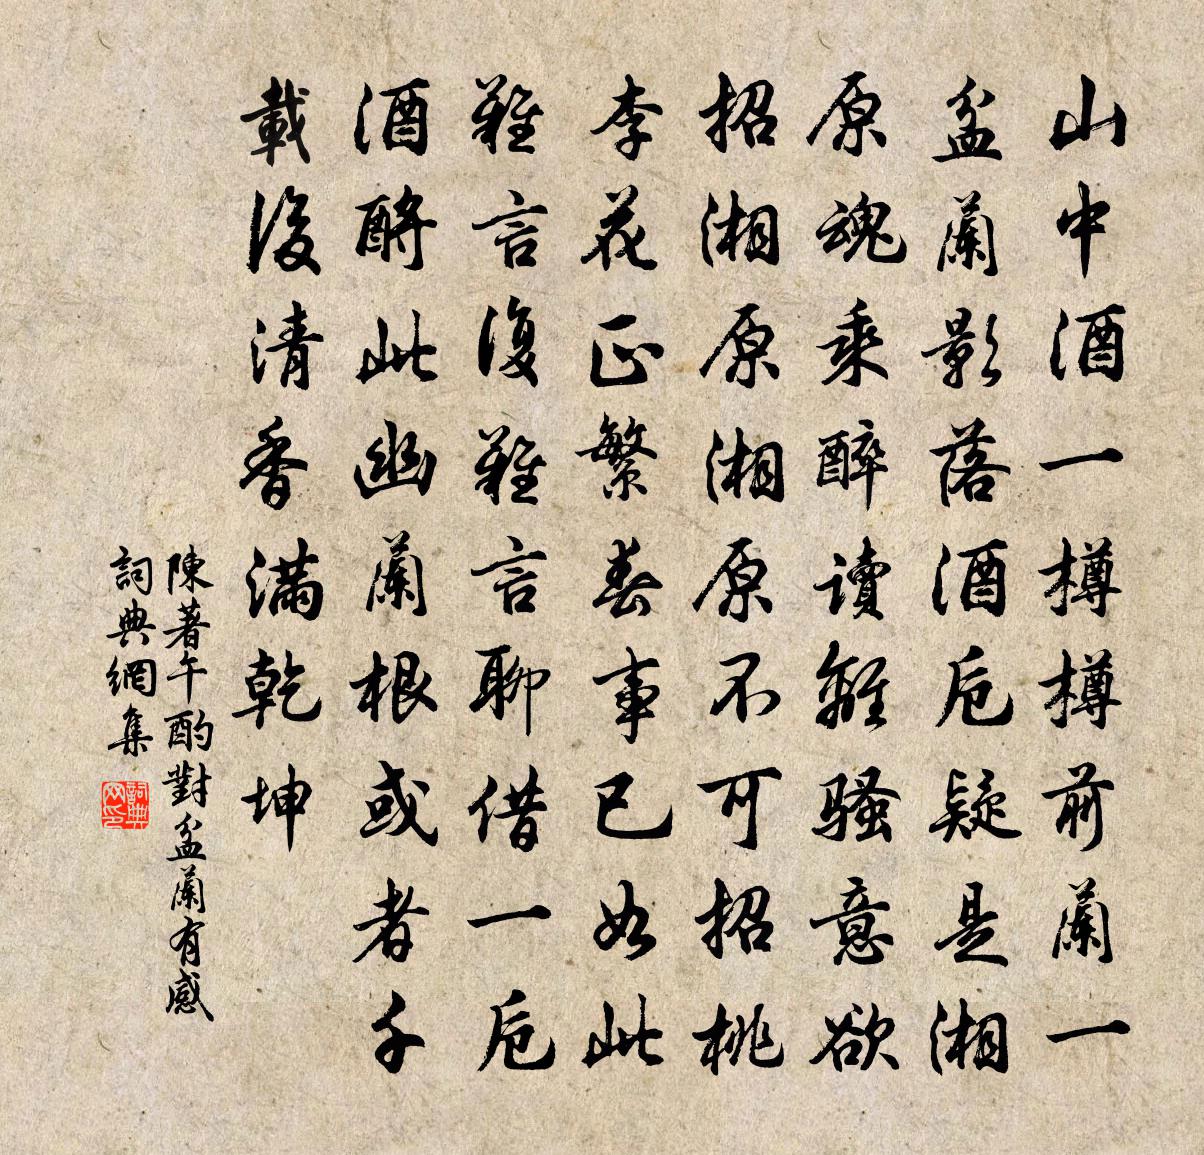 山中酒一樽樽前蘭一
盆蘭影落酒卮疑是湘
原魂乘醉讀離騷意欲
招湘原湘原不可招桃
李花正繁春事已如此
難言復難言聊借一卮
酒酹此幽蘭根或者千
載後清香滿乾坤
陳著午酌對盆蘭有感
詞典網集
詞典网印